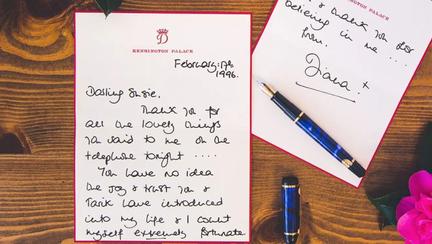 D
KENSINGTON PALACE
February: 17th
1996.
Darling Susie.
Thank you for
all the lovely things
you said to me on the
telephone tonight ....
You have no idea
the joy & trust you &
Tarik have introduced
into my life & I count
myself extremely fortunate
KENSINGTON PALACE
& thank you also for
believing in me ...
from.
Diana. x